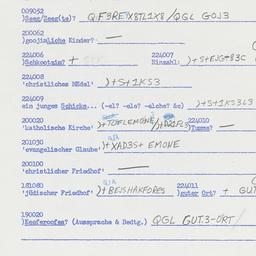 009052
)Seez/Seez(te)? QF9RETX8TL1X8/QGL GOJ3
200062
)goojische Kinder? —
224006 224007
)Schkootzim? + Einzahl: )+S+EJG+83C
224008
'christliches Mädel' )+S+1KS3
224009
ein junges Schicks... (-el? -ele? -elche? &c) )+S+1KS3L3
200020 224010
'katholische Kirche' )+TOFLEMONE/)+D21FL3 )Tumme? —
201030 n/a
'evangelischer Glaube' )+XAD3S+ EMONE
200100
'christlicher Friedhof' —
181080 n/a 224011
'jüdischer Friedhof' )+BEJSHAKFORES )guter Ort? + GUT
190020
)Keeferoofes? (Aussprache & Bedtg.) QGL GUT.3-ORT/